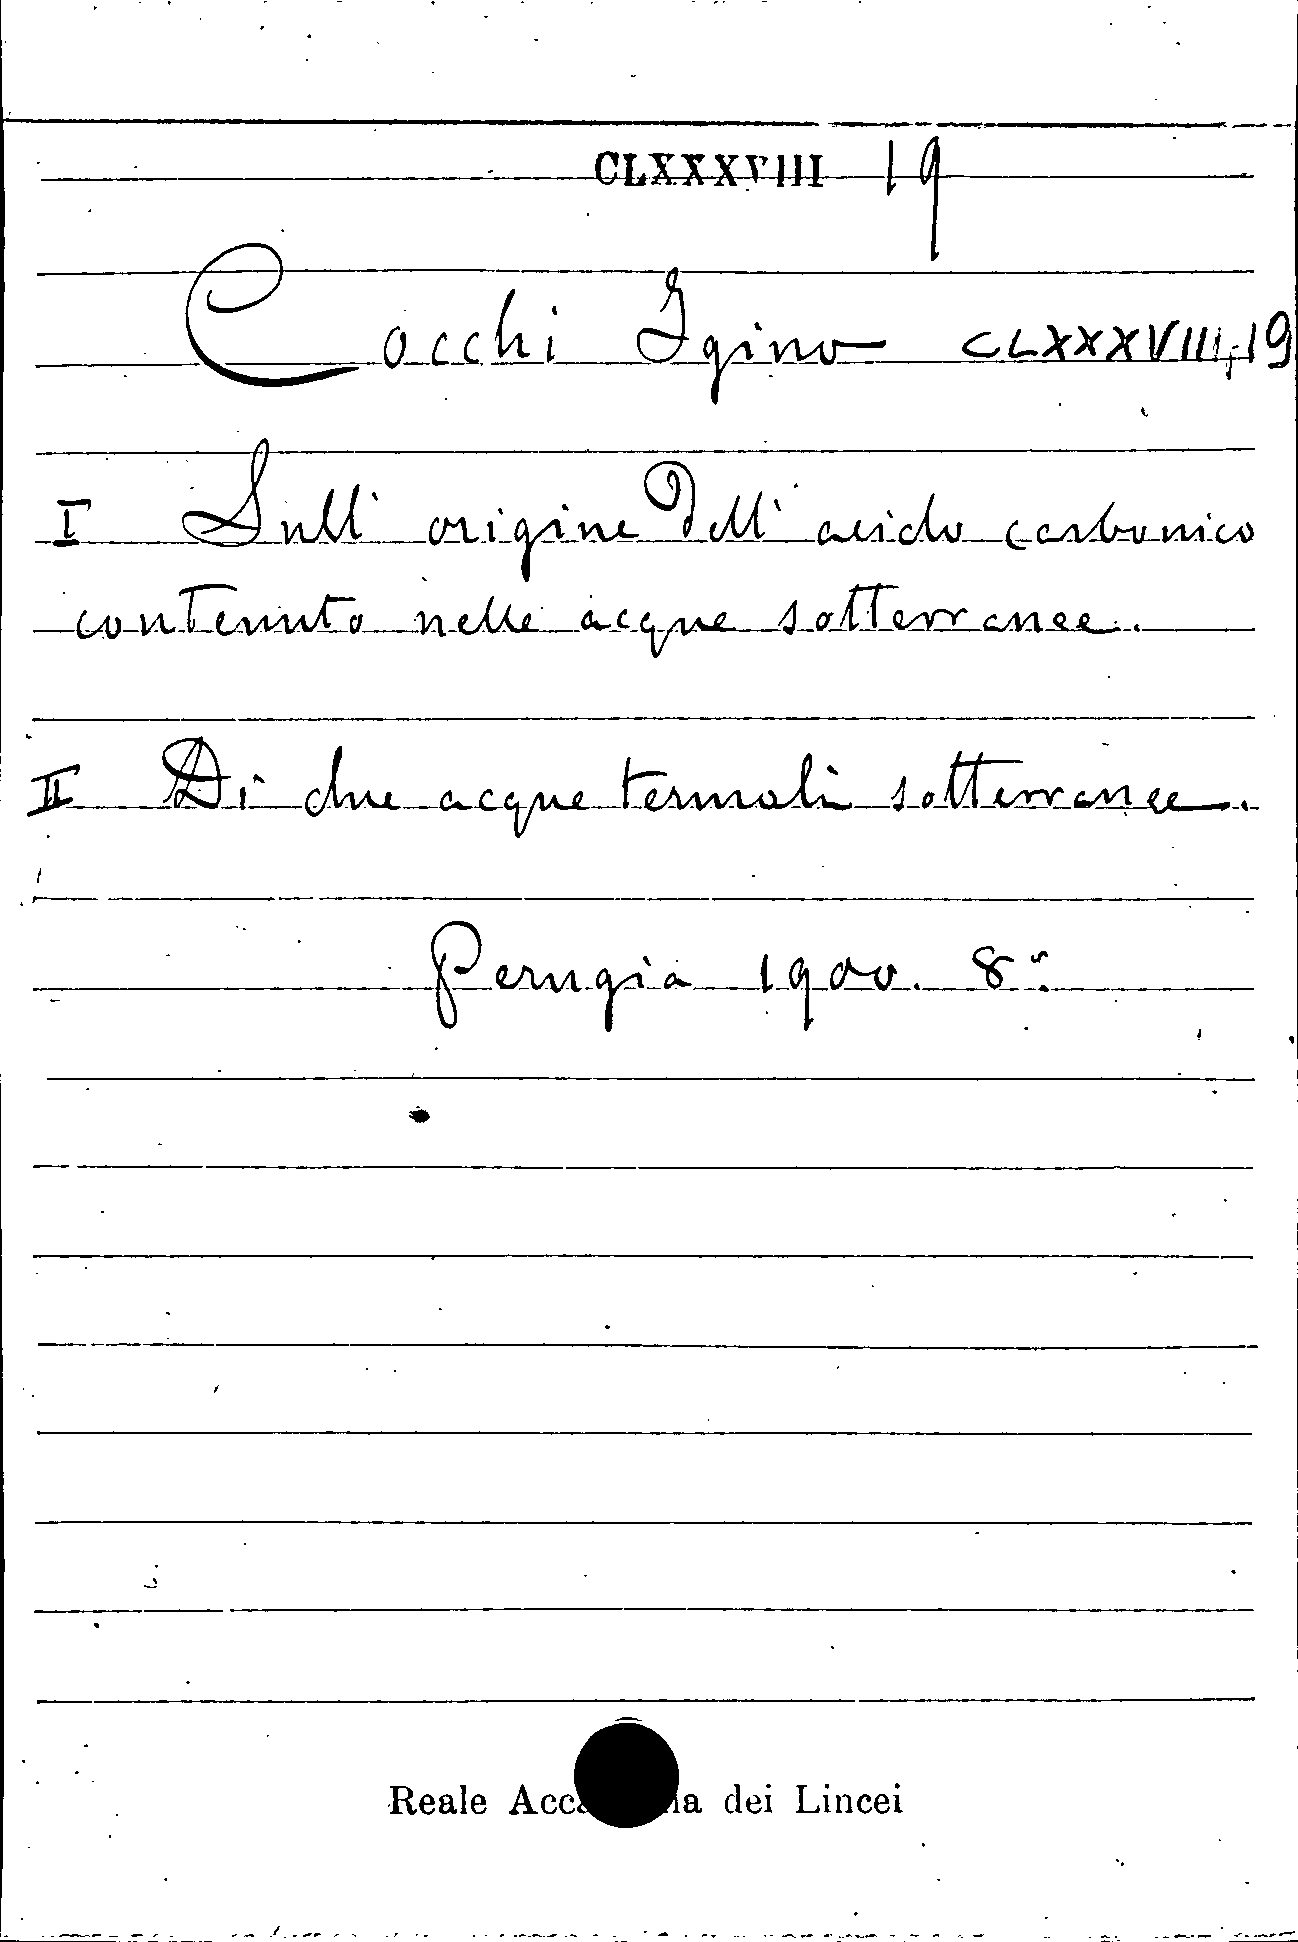 CLXXXVIII 19
Cocchi Igino CLXXXVIII,19
I Sull' origine dell' acido carbonico
contenuto nelle acque sotterranee.
II Di due acque termali sotterranee.
Perugia 1900. 8º.
Reale dei Lincei